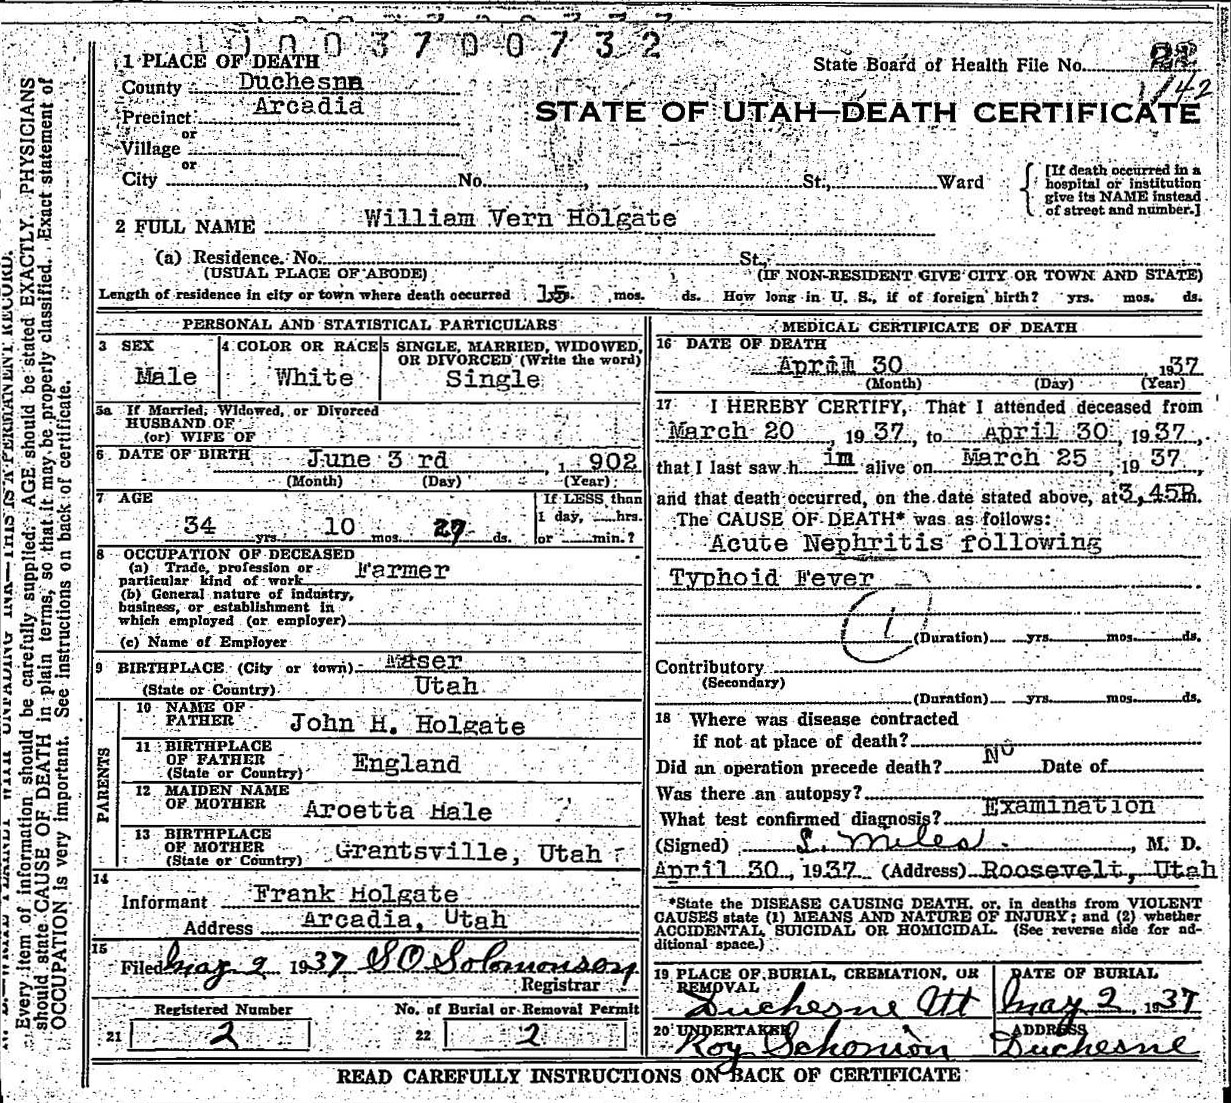 1003700732
1 PLACE OF DEATH
State Board of Health File No.
County Duchesne
142
Precinct Arcadia
STATE OF UTAH—DEATH CERTIFICATE
or
Village
or
City No. , St., Ward
[If death occurred in a
hospital or institution
give its NAME instead
of street and number.]
2 FULL NAME William Vern Holgate
(a) Residence. No. St.,
(USUAL PLACE OF ABODE) (IF NON-RESIDENT GIVE CITY OR TOWN AND STATE)
Length of residence in city or town where death occurred 15 yrs. mos. ds. How long in U. S., if of foreign birth? yrs. mos. ds.
PERSONAL AND STATISTICAL PARTICULARS
3 SEX
Male
4 COLOR OR RACE
White
5 SINGLE, MARRIED, WIDOWED,
OR DIVORCED (Write the word)
Single
5a If Married, Widowed, or Divorced
HUSBAND OF
(or) WIFE OF
6 DATE OF BIRTH June 3 rd , 1902
(Month) (Day) (Year)
7 AGE
34 yrs. 10 mos. 27 ds.
If LESS than
1 day, hrs.
or min.?
8 OCCUPATION OF DECEASED
(a) Trade, profession or
particular kind of work Farmer
(b) General nature of industry,
business, or establishment in
which employed (or employer)
(c) Name of Employer
9 BIRTHPLACE (City or town) Maser
(State or Country) Utah
PARENTS
10 NAME OF
FATHER John H. Holgate
11 BIRTHPLACE
OF FATHER
(State or Country) England
12 MAIDEN NAME
OF MOTHER Aroetta Hale
13 BIRTHPLACE
OF MOTHER
(State or Country) Grantsville, Utah
14
Informant Frank Holgate
Address Arcadia, Utah
15
Filed May 2 1937 S O Solomonson
Registrar
Registered Number
21 2
No. of Burial or Removal Permit
22 2
MEDICAL CERTIFICATE OF DEATH
16 DATE OF DEATH
April 30 1937
(Month) (Day) (Year)
17 I HEREBY CERTIFY, That I attended deceased from
March 20, 1937, to April 30, 1937,
that I last saw him alive on March 25, 1937
and that death occurred, on the date stated above, at 3,45P.m.
The CAUSE OF DEATH* was as follows:
Acute Nephritis following
Typhoid Fever
1
(Duration) yrs. mos. ds.
Contributory
(Secondary)
(Duration) yrs. mos. ds.
18 Where was disease contracted
if not at place of death?
Did an operation precede death? No Date of
Was there an autopsy?
What test confirmed diagnosis? Examination
(Signed) L. Miles , M. D.
April 30, 1937 (Address) Roosevelt, Utah
*State the DISEASE CAUSING DEATH, or, in deaths from VIOLENT
CAUSES state (1) MEANS AND NATURE OF INJURY; and (2) whether
ACCIDENTAL, SUICIDAL OR HOMICIDAL. (See reverse side for ad-
ditional space.)
19 PLACE OF BURIAL, CREMATION, OR
REMOVAL
Duchesne Ut
DATE OF BURIAL
May 2, 1937
20 UNDERTAKER
Roy Schonion
ADDRESS
Duchesne
READ CAREFULLY INSTRUCTIONS ON BACK OF CERTIFICATE
THIS IS A PERMANENT RECORD.
Every item of information should be carefully supplied. AGE should be stated EXACTLY. PHYSICIANS
should state CAUSE OF DEATH in plain terms, so that it may be properly classified. Exact statement of
OCCUPATION is very important. See instructions on back of certificate.